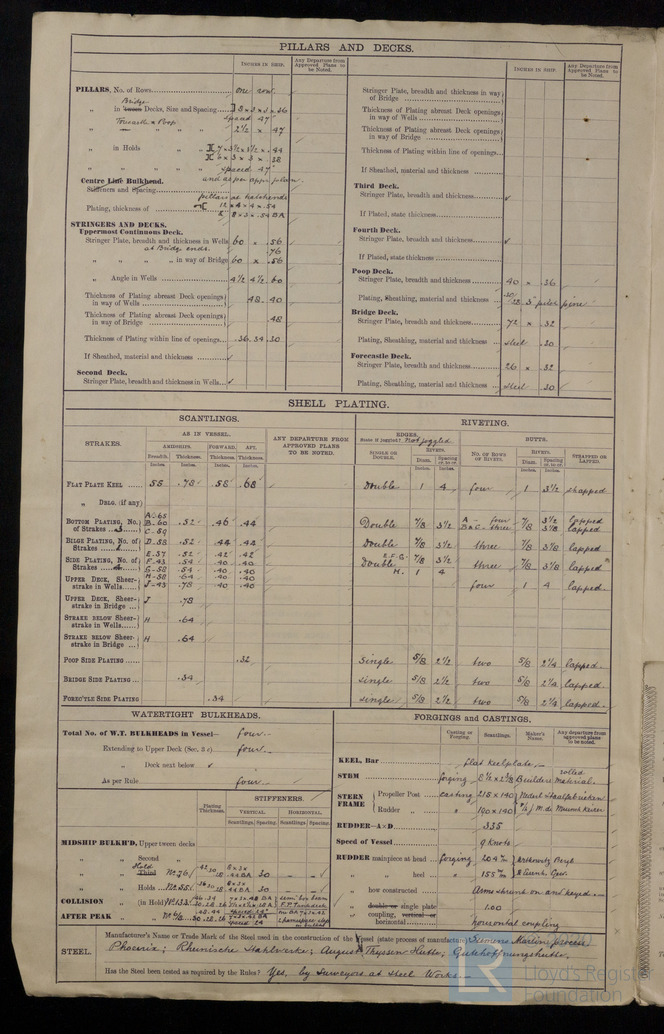 PILLARS AND DECKS.
INCHES IN SHIP.
Any Departure from Approved Plans to be Noted.
PILLARS, No. of Rows one row.
Bridge
„ in Decks, Size and Spacing 3 x 3 x .36
Forecastle & Poop spaced 47"
„ „ „ 2½ x .47
„ in Holds 7 x 3½ x 3½ x .44
6 x 3 x 3 x .38
„ „ „ spaced 47"
Centre Line Bulkhead. and as per appr plan.
Stiffeners and Spacing
pillars at hatchends
Plating, thickness of 12 x 4 x 4 x .54
8 x 3 x .54 BA
STRINGERS AND DECKS.
Uppermost Continuous Deck.
Stringer Plate, breadth and thickness in Wells 60 x .56
at Bridge ends. .76
„ „ „ „ in way of Bridge 60 x .56
„ Angle in Wells 4½ 4½ .60
Thickness of Plating abreast Deck openings in way of Wells .48 .40
Thickness of Plating abreast Deck openings in way of Bridge .48
Thickness of Plating within line of openings .36 .34 .30
If Sheathed, material and thickness ✓
Second Deck.
Stringer Plate, breadth and thickness in Wells ✓
INCHES IN SHIP.
Any Departure from Approved Plans to be Noted.
Stringer Plate, breadth and thickness in way of Bridge
Thickness of Plating abreast Deck openings in way of Wells
Thickness of Plating abreast Deck openings in way of Bridge
Thickness of Plating within line of openings
If Sheathed, material and thickness
Third Deck.
Stringer Plate, breadth and thickness ✓
If Plated, state thickness
Fourth Deck.
Stringer Plate, breadth and thickness ✓
If Plated, state thickness
Poop Deck.
Stringer Plate, breadth and thickness 40 x .36
Plating, Sheathing, material and thickness 3" pitch pine
Bridge Deck.
Stringer Plate, breadth and thickness 72 x .32
Plating, Sheathing, material and thickness steel .30
Forecastle Deck.
Stringer Plate, breadth and thickness 26 x .32
Plating, Sheathing, material and thickness steel .30
SHELL PLATING.
SCANTLINGS.
RIVETING.
STRAKES.
AS IN VESSEL.
ANY DEPARTURE FROM APPROVED PLANS TO BE NOTED.
EDGES.
State if joggled? Not joggled
BUTTS.
AMIDSHIPS. FORWARD. AFT.
Breadth. Thickness. Thickness. Thickness.
Inches. Inches. Inches. Inches.
SINGLE OR DOUBLE.
RIVETS.
Diam. Spacing cr. to cr.
Inches. Inches.
NO. OF ROWS OF RIVETS.
RIVETS.
Diam. Spacing cr. to cr.
Inches. Inches.
STRAPPED OR LAPPED.
FLAT PLATE KEEL 58 .78 .58 .68 Double 1 4 four 1 3½ strapped
„ DBLG. (if any)
BOTTOM PLATING, No. of Strakes 3 A-65 B-60 C-59 .52 .46 .44 Double 7/8 3½ A - four B & C three 7/8 7/8 3½ 3⅜ lapped lapped
BILGE PLATING, No. of Strakes 1 D.58 .52 .44 .42 Double 7/8 3½ three 7/8 3⅜ lapped
SIDE PLATING, No. of Strakes 4 E.57 .52 .42 .42
F.43 .54 .40 .40
G-58 .54 .40 .40
E.F.G. Double 7/8 3½ three 7/8 3⅜ lapped
UPPER DECK, Sheerstrake in Wells H-58 .64 .40 .40 H. 1 4
J-43 .78 .40 .40 four 1 4 lapped
UPPER DECK, Sheerstrake in Bridge J .78
STRAKE BELOW Sheerstrake in Wells H .64
STRAKE BELOW Sheerstrake in Bridge H .64
POOP SIDE PLATING .32 Single 5/8 2½ two 5/8 2¼ lapped
BRIDGE SIDE PLATING .34 single 5/8 2½ two 5/8 2¼ lapped
FORECTLE SIDE PLATING .34 single 5/8 2½ two 5/8 2¼ lapped
WATERTIGHT BULKHEADS.
Total No. of W.T. BULKHEADS in Vessel— four
Extending to Upper Deck (Sec. 3 c) four
„ Deck next below ✓
As per Rule four
Plating Thickness.
STIFFENERS.
VERTICAL. HORIZONTAL.
Scantlings. Spacing. Scantlings. Spacing.
MIDSHIP BULKH'D, Upper tween decks
„ „ Second „
Hold
„ „ Third „ No 76 30 — —
„ „ Holds No 55 30 — —
COLLISION „ (in Hold) No 133
AFTER PEAK „ „ No 6
FORGINGS and CASTINGS.
Casting or Forging. Scantlings. Maker's Name. Any departure from approved plans to be noted.
KEEL, Bar flat keelplate
STEM forging 8½ x 2⅜ Builders rolled material.
STERN FRAME Propeller Post casting 215 x 140
Rudder „ „ 190 x 140
RUDDER—A x D 335
Speed of Vessel 9 Knots
RUDDER mainpiece at head forging 204 m/m
„ „ heel „ 155 m/m
„ how constructed Arms shrunk on and keyed.
„ double or single plate 1.00
„ coupling, vertical or horizontal horizontal coupling
STEEL.
Manufacturer's Name or Trade Mark of the Steel used in the construction of the Vessel (state process of manufacture) Siemens Martin process
Phoenix; Rheinische Stahlwerke; August Thyssen Hütte; Gutehoffnungshütte.
Has the Steel been tested as required by the Rules? Yes, by Surveyors at Steel Works.
LR
Lloyd's Register
Foundation